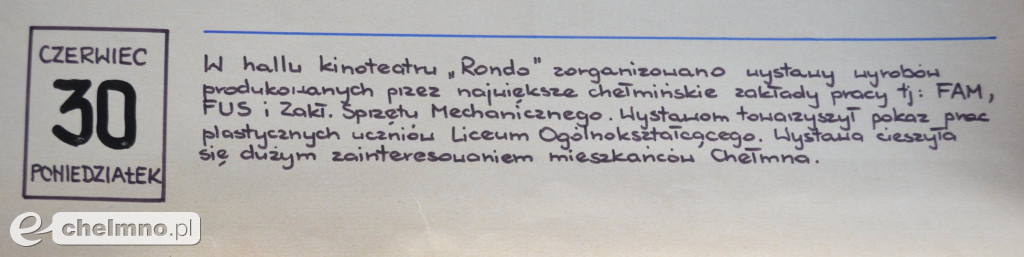 CZERWIEC
30
PONIEDZIAŁEK
W hallu kinoteatru „Rondo" zorganizowano wystawy wyrobów
produkowanych przez największe chełmińskie zakłady pracy tj: FAM,
FUS i Zakł. Sprzętu Mechanicznego. Wystawom towarzyszył pokaz prac
plastycznych uczniów Liceum Ogólnokształcącego. Wystawa cieszyła
się dużym zainteresowaniem mieszkańców Chełmna.
e-chelmno.pl